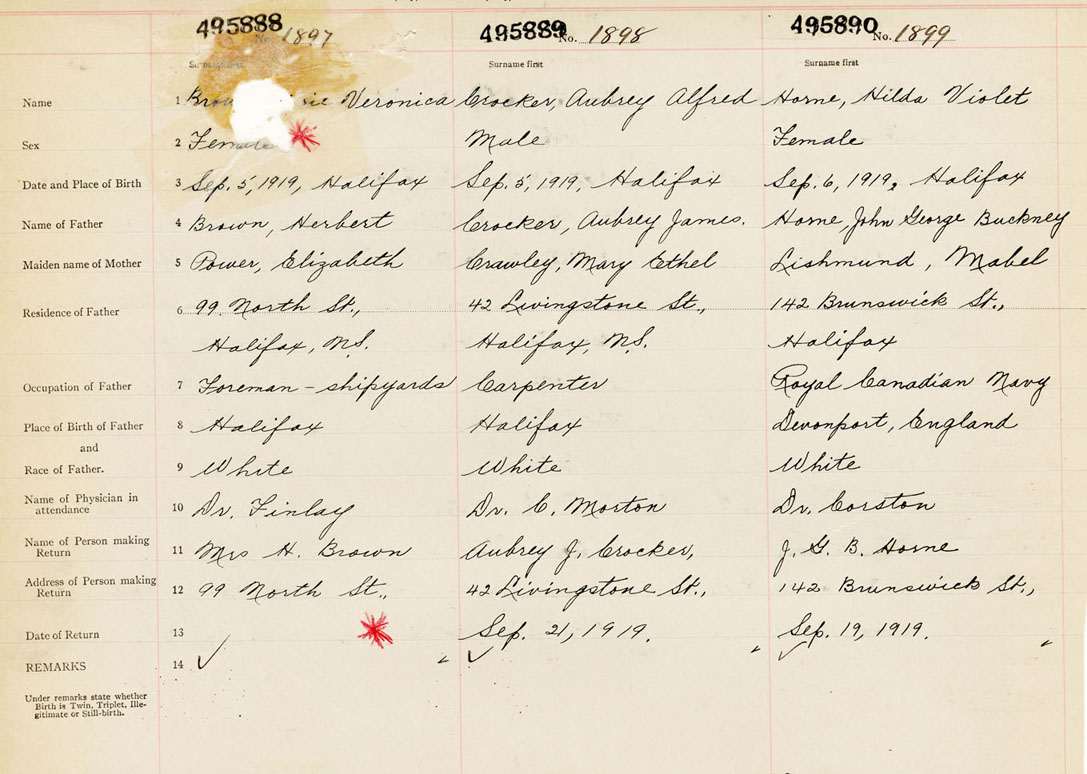 495888 495889 495890
No. 1897 No. 1898 No. 1899
Surname first Surname first
Name 1 Veronica Crocker, Aubrey Alfred Horne, Hilda Violet
Sex 2 Female Male Female
Date and Place of Birth 3 Sep. 5, 1919, Halifax Sep. 5, 1919, Halifax Sep. 6, 1919, Halifax
Name of Father 4 Brown, Herbert Crocker, Aubrey James. Horne, John George Buckney
Maiden name of Mother 5 Power, Elizabeth Crawley, Mary Ethel Lishmund, Mabel
Residence of Father 6 99 North St., 42 Livingstone St., 142 Brunswick St.,
Halifax, N.S. Halifax, N.S. Halifax
Occupation of Father 7 Foreman - shipyards Carpenter Royal Canadian Navy
Place of Birth of Father 8 Halifax Halifax Devonport, England
and
Race of Father. 9 White White White
Name of Physician in
attendance 10 Dr. Finlay Dr. C. Morton Dr. Corston
Name of Person making
Return 11 Mrs H. Brown Aubrey J. Crocker, J. G. B. Horne
Address of Person making
Return 12 99 North St., 42 Livingstone St., 142 Brunswick St.,
Date of Return 13 Sep. 21, 1919. Sep. 19, 1919.
REMARKS 14
Under remarks state whether
Birth is Twin, Triplet, Ille-
gitimate or Still-birth.